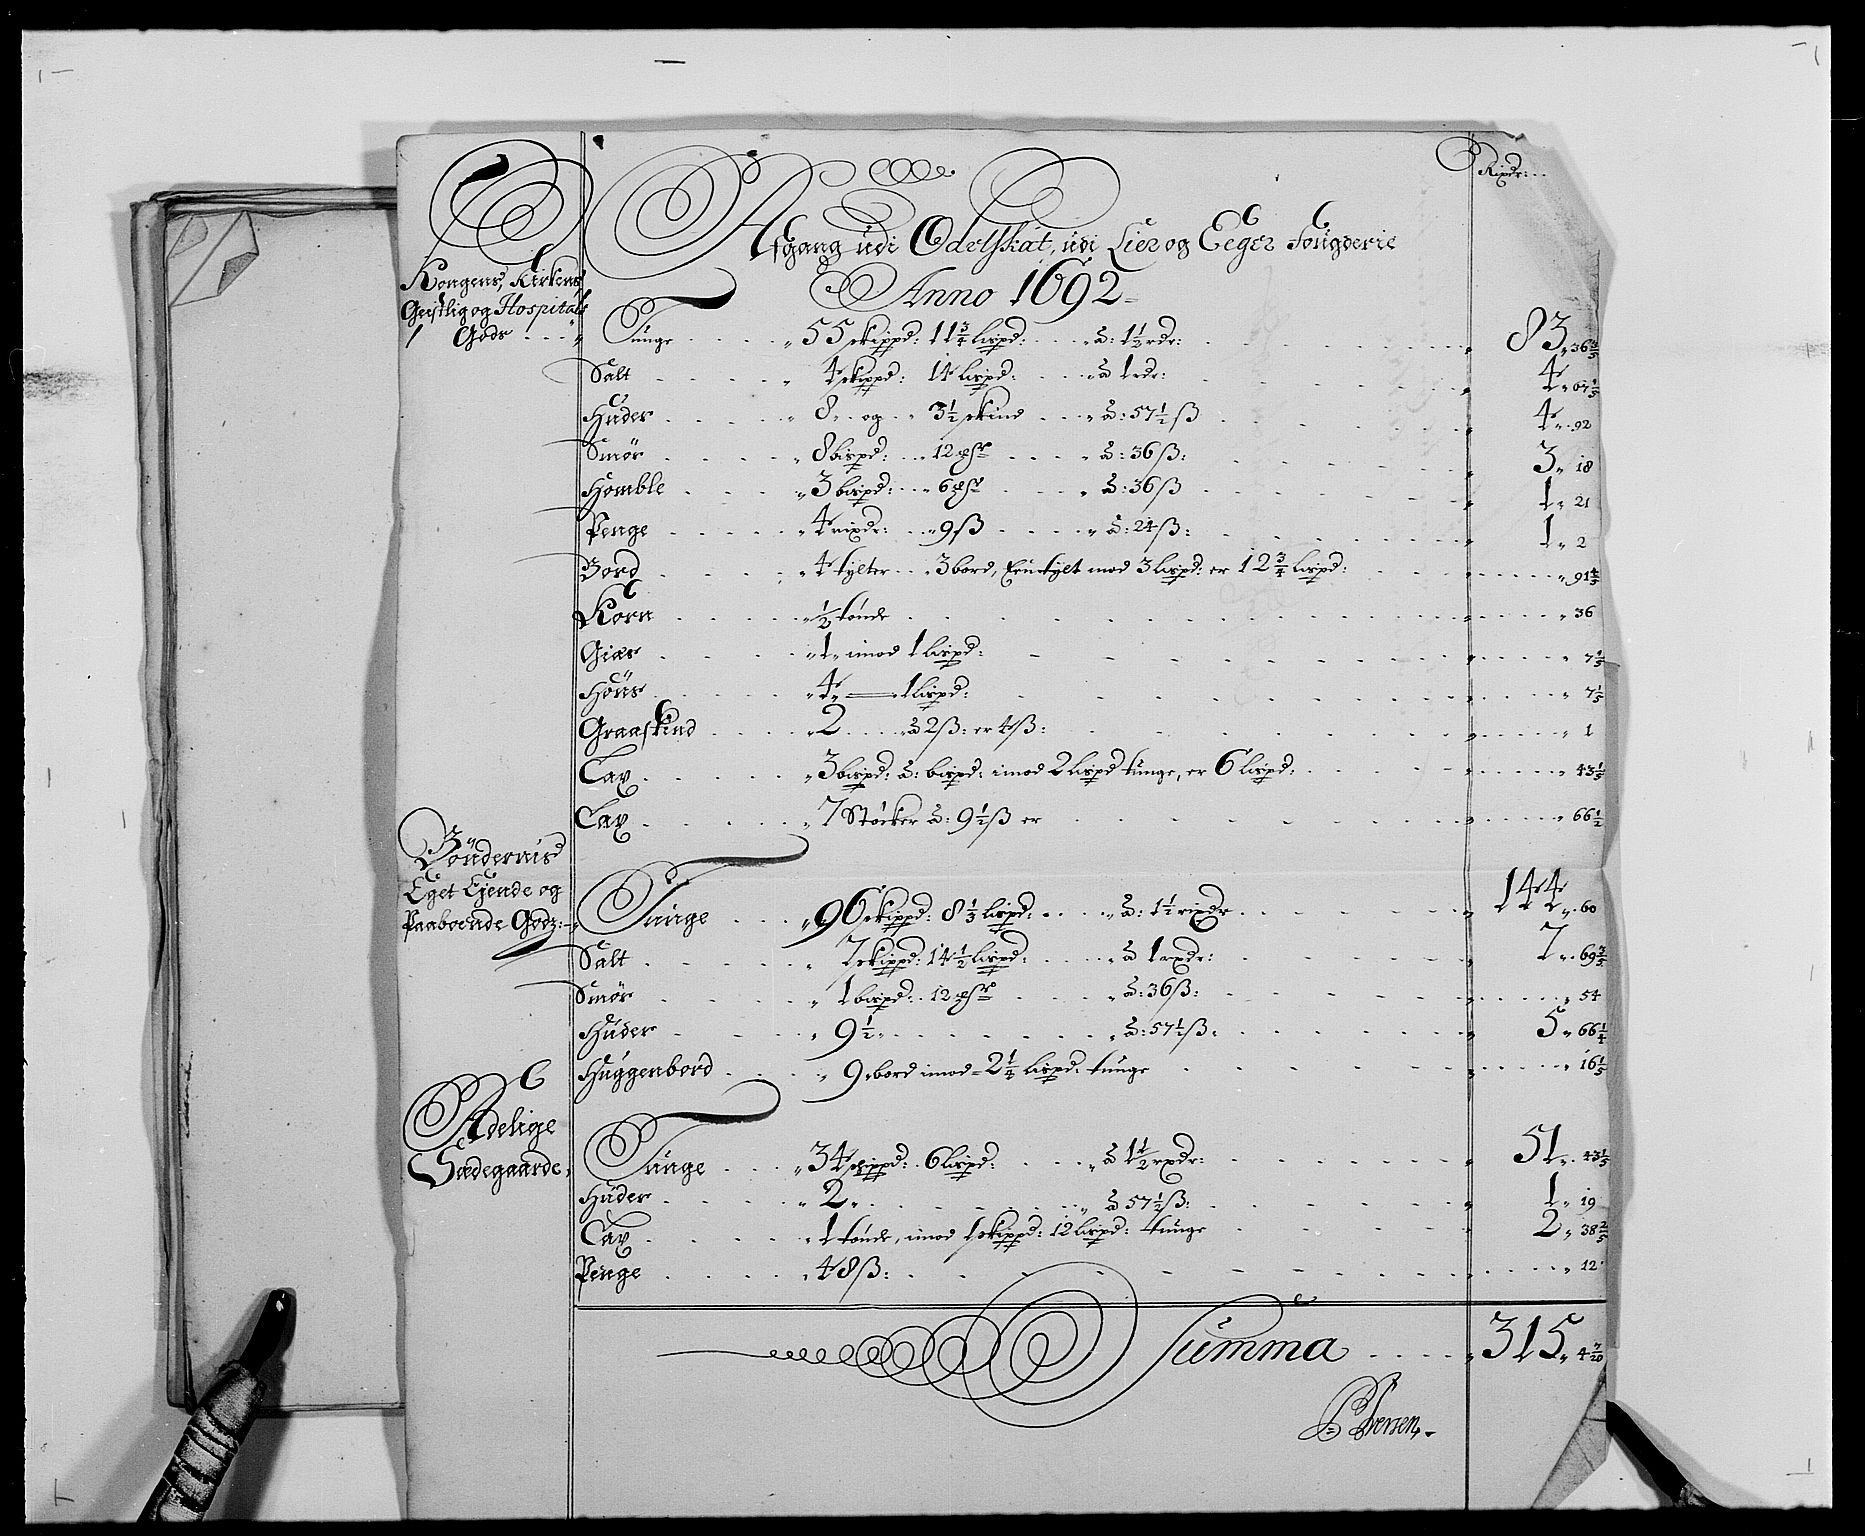 Rixdr:
Afgang udi Odelsskat, udi Lier og Eeger fougderie
Anno 1692
Kongens, Kirkens
Geistlig og Hospitals
Gods
Tunge 55 skippd: 11 3/4 lispd: à: 1 1/2 rdr: 83 „ 36 3/5
Salt 4 skippd: 14 lispd: à 1 rdr: 4 „ 67 1/5
Huder 8 „ og „ 3 1/2 skind à: 57 1/2 ß 4 „ 92
Smør 8 bispd: 12 à: 36 ß: 3 „ 18
Homble 3 bispd: 6 à: 36 ß 1 „ 21
Penge 4 rixdr: 9 ß à: 24 ß: 1 „ 2
Bord 4 tylter 3 bord, Een tylt mod 3 lispd: er 12 3/4 lispd: „ 91 4/5
Korn 1/2 tønde „ 36
Giæs 1 „ imod 1 lispd: „ 7 1/5
Høns 4 „ — 1 lispd: „ 7 1/5
Graaskind 2 à 2 ß: er 4 ß: „ 1
Lax 3 bispd: à: bispd: imod 2 lispd tunge, er 6 lispd: „ 43 1/5
Lax 7 Støcker à: 9 1/2 ß er „ 66 1/2
Bøndernis
Eget Ejende og
Paaboende Godz:
Tunge 96 skippd: 8 1/3 lispd: à: 1 1/2 rixdr 144 „ 60
Salt 7 skippd: 14 1/2 lispd: à 1 rxdr: 7 „ 69 3/5
Smør 1 bispd: 12 à: 36 ß: „ 54
Huder 9 1/2 „ à: 57 1/2 ß: 5 „ 66 1/4
Huggenbord 9 bord imod 2 1/4 lispd. tunge „ 16 1/5
Adelige
Sædegaarde,
Tunge 34 skippd: 6 lispd: à 1 1/2 rxdr: 51 „ 43 1/5
Huder 2 „ à 57 1/2 ß: 1 „ 19
Lax 1 tønde, imod 1 skippd: 12 lispd: tunge 2 „ 38 2/5
Penge 48 ß: „ 12
Summa 315 „ 4 7/20
Iversen